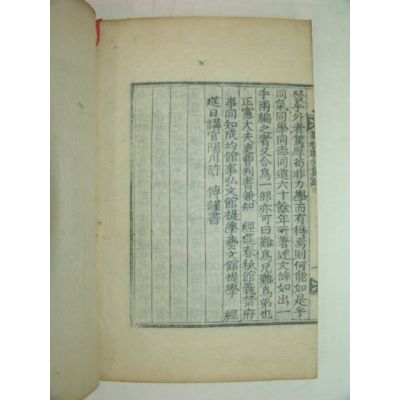 發乎外者篤厚苟非力學而有得焉則何能如是乎
同氣同學同志同道六十餘年所著述文辭如出一
手兩編之者又合爲一部亦可曰難爲兄難爲弟也
正憲大夫吏曹判書兼知 經筵春秋館義禁府
事同知成均館事弘文館提學藝文館提學 經
筵日講官陽川許 傳謹書